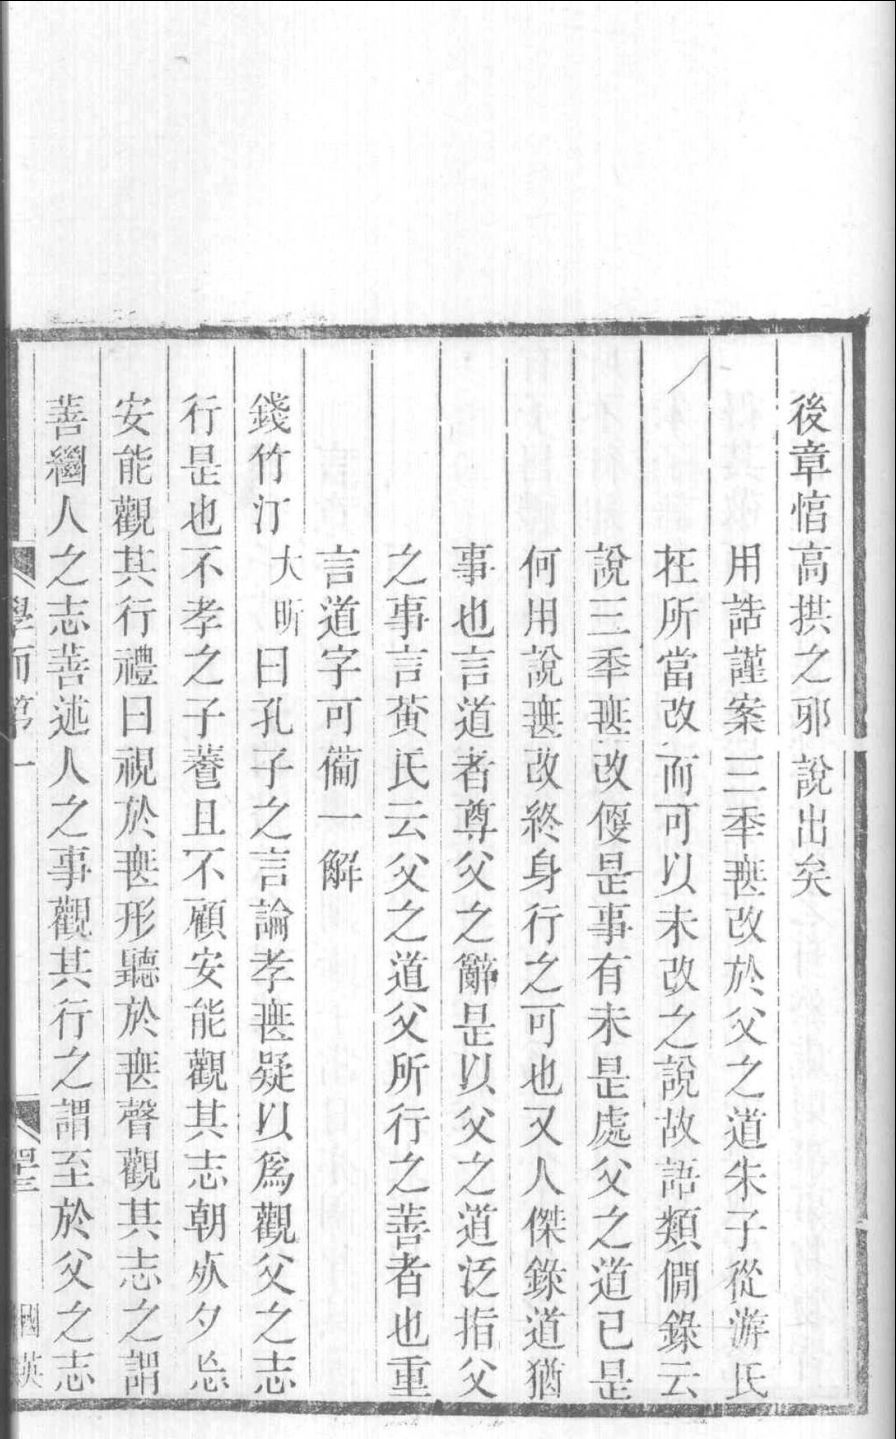 後章悎高拱之邪說出矣
用誥謹案三秊𣞤改於父之道朱子從游氏
在所當改而可以未改之說故語類僩錄云
說三秊𣞤改便是事有未是處父之道已是
何用說𣞤改終身行之可也又人傑錄道猶
事也言道者尊父之辭是以父之道泛指父
之事言黃氏云父之道父所行之善者也重
言道字可備一解
錢竹汀大昕曰孔子之言論孝𣞤疑以爲觀父之志
行是也不孝之子蓍且不顧安能觀其志朝死夕忘
安能觀其行禮曰視於𣞤形聽於𣞤聲觀其志之謂
善繼人之志善述人之事觀其行之謂至於父之志
學而第一